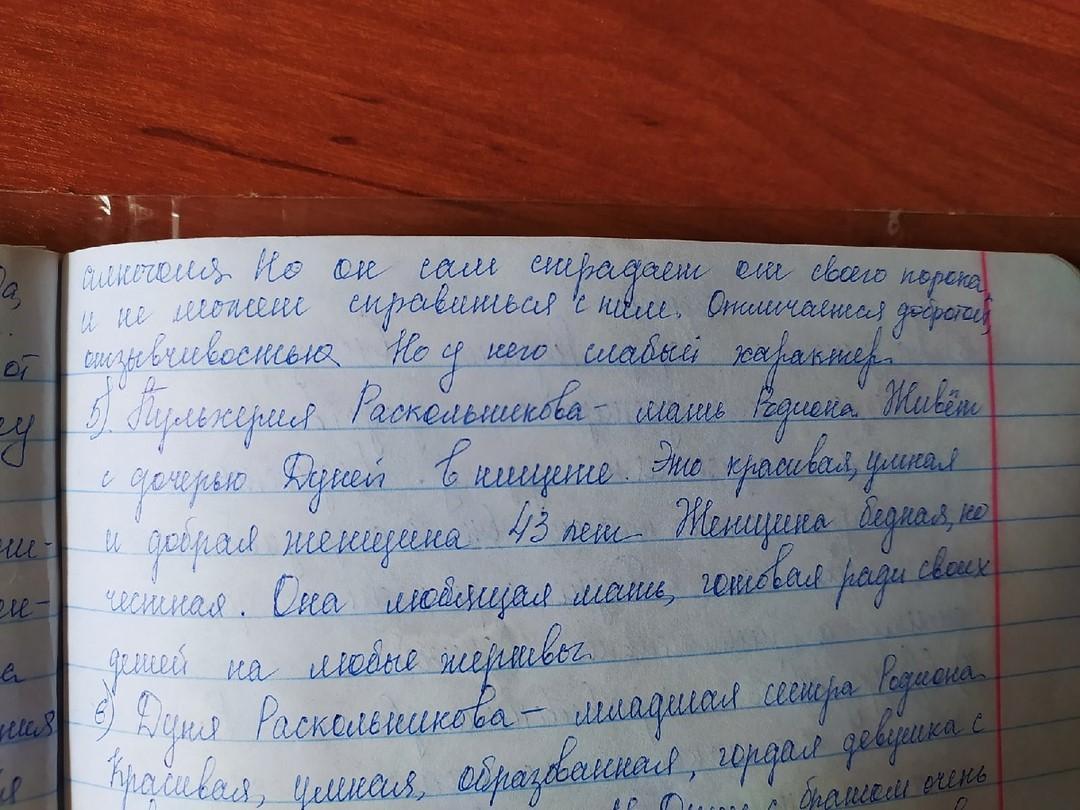 алкоголя. Но он сам страдает от своего порока
и не может справиться с ним. Отличается добротой,
отзывчивостью. Но у него слабый характер.
5). Пульхерия Раскольникова - мать Родиона. Живёт
с дочерью Дуней в нищете. Это красивая, умная
и добрая женщина 43 лет. Женщина бедная, но
честная. Она любящая мать, готовая ради своих
детей на любые жертвы.
6) Дуня Раскольникова - младшая сестра Родиона.
Красивая, умная, образованная, гордая девушка с
Дуня с братом очень